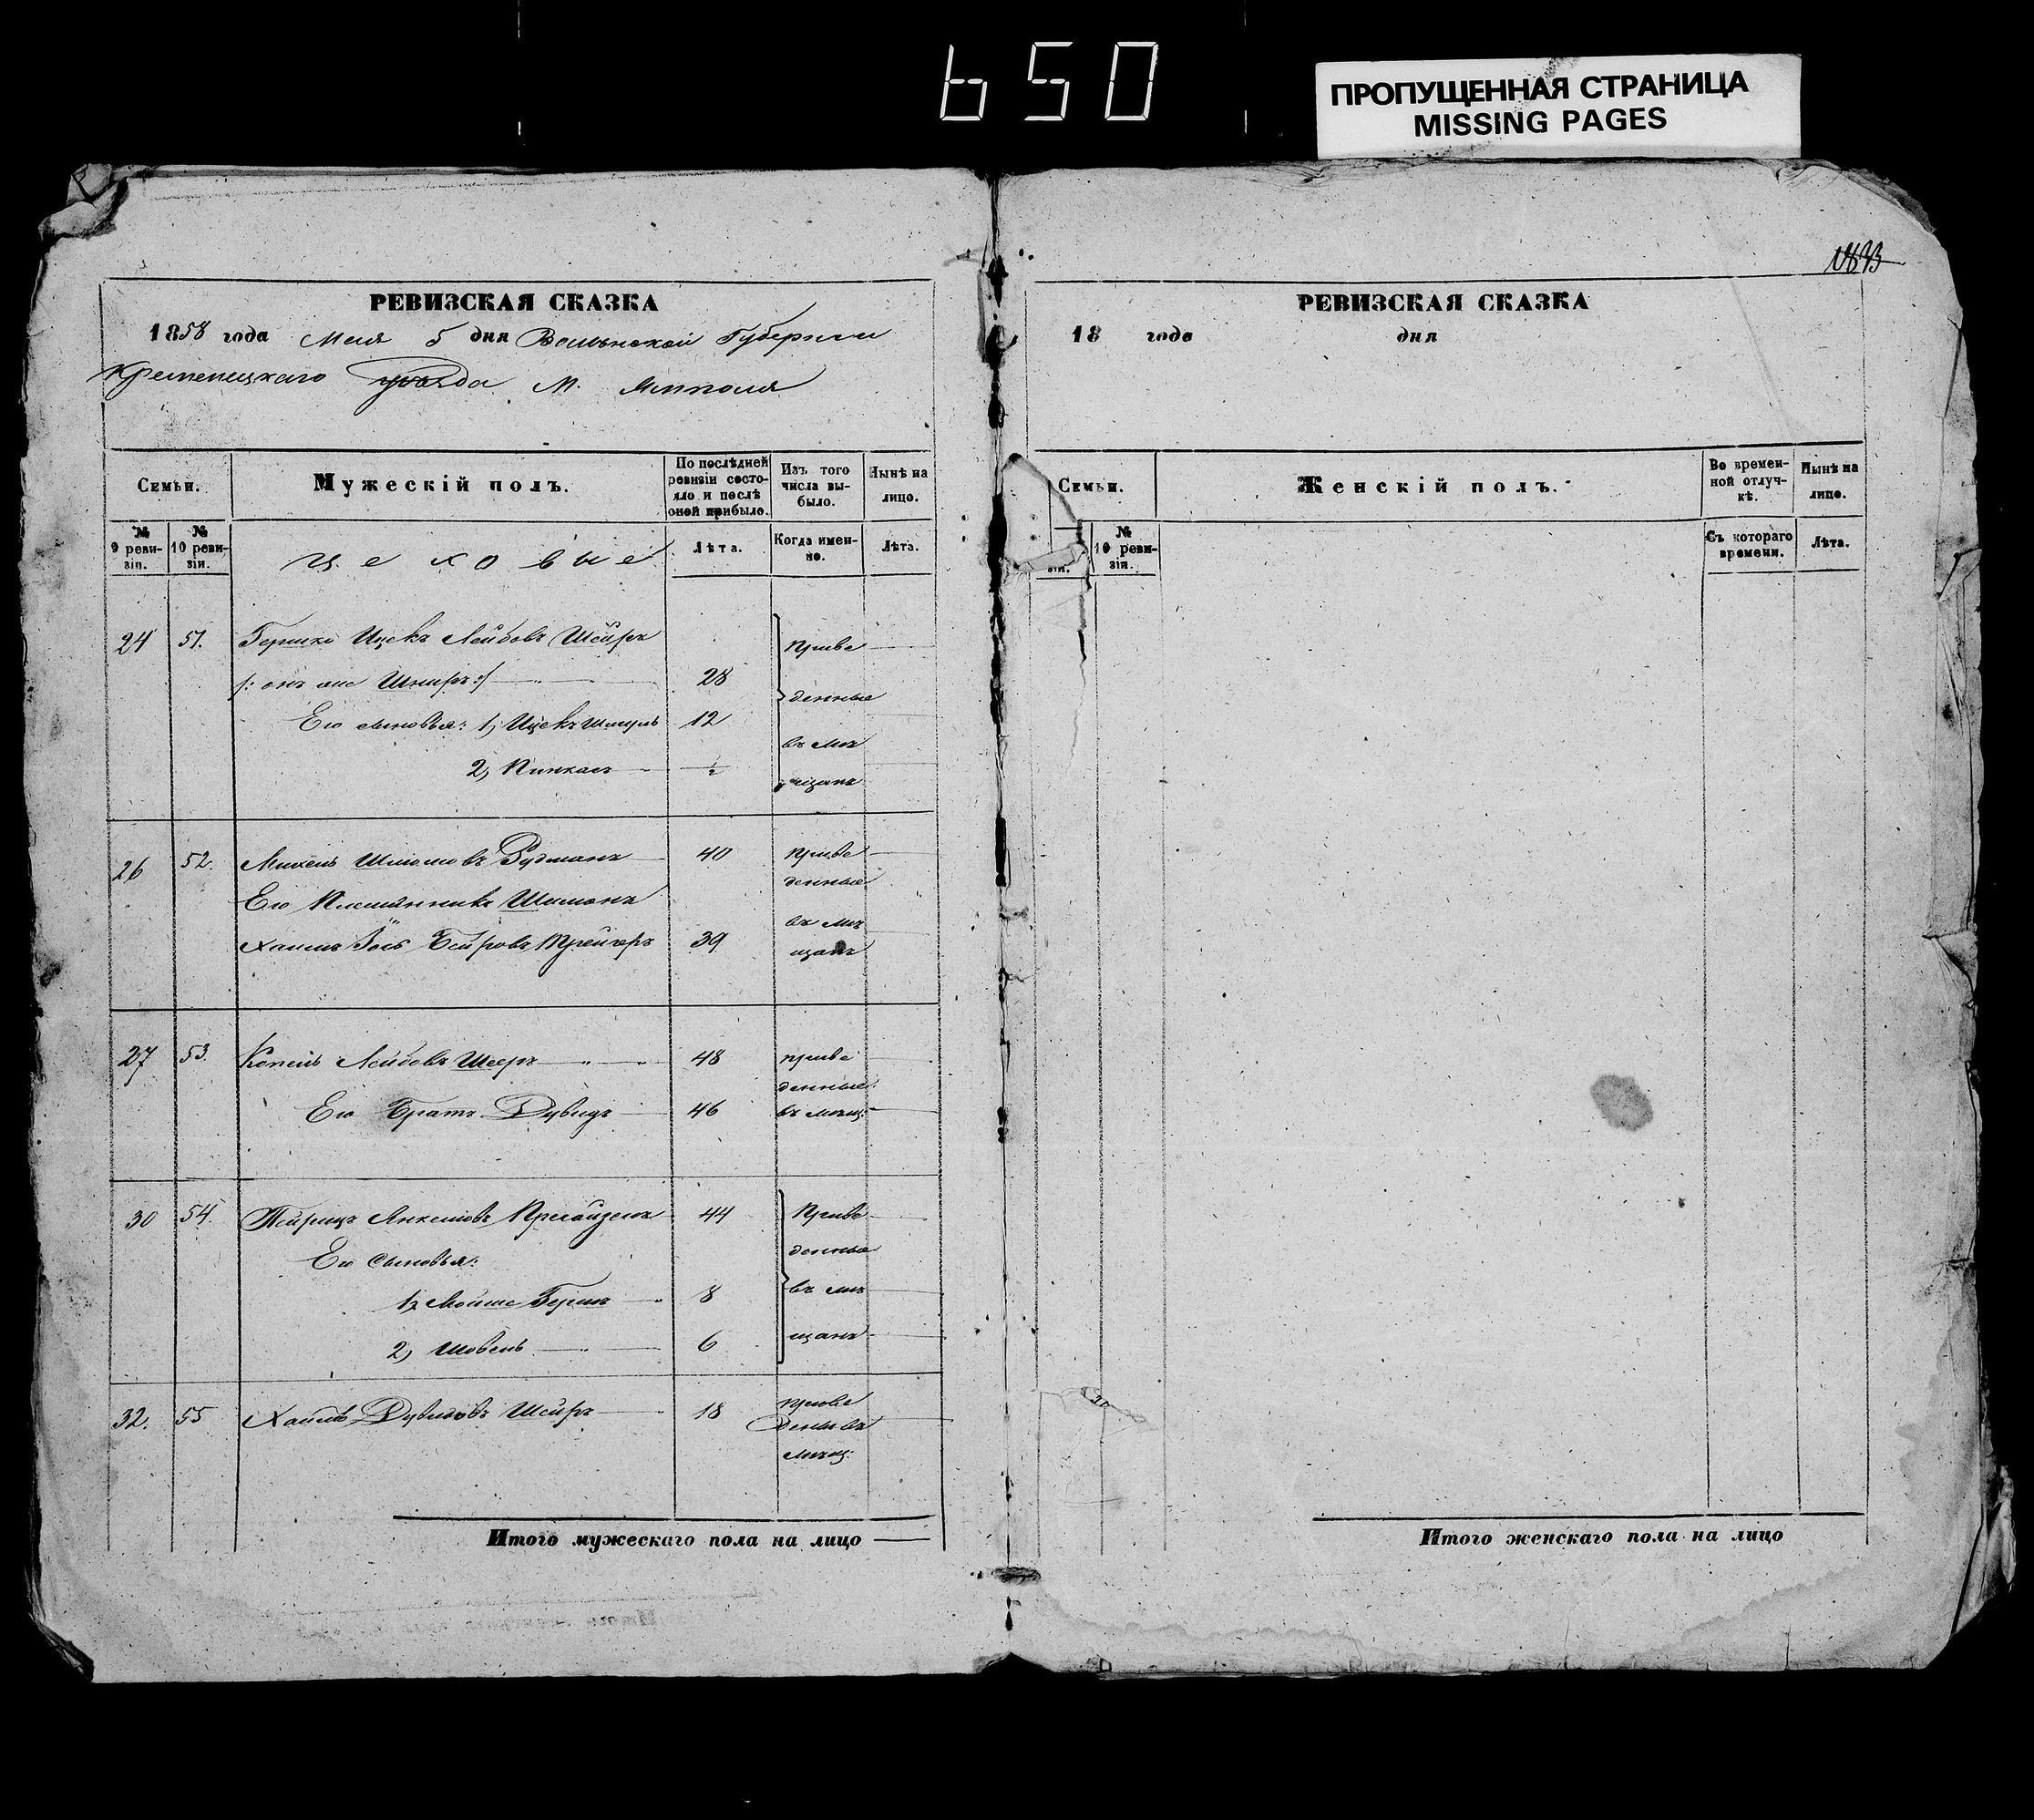 650
ПРОПУЩЕННАЯ СТРАНИЦА
MISSING PAGES
РЕВИЗСКАЯ СКАЗКА
1858 года Мая 5 дня Волынской Губернии
Кременецкаго уѣзда М. Ямполя
Семьи.
Мужескій полъ.
По послѣдней ревизіи состояло и послѣ оной прибыло.
Изъ того числа выбыло.
Нынѣ на лицо.
№ 9 ревизіи.
№ 10 ревизіи.
Цеховые
Лѣта.
Когда именно.
Лѣта.
24 51. Гершко Ицекъ Лейбовъ Шейръ Приве
/: онъ же Шниръ :/ 28 денные
Его сыновья: 1, Ицекъ Шмуль 12 въ мѣ
2, Пинкасъ ½ щанъ
26 52. Михель Шлиомовъ Рудманъ 40 Приве
денные
Его Племянникъ Шимонъ въ мѣ
Хаимъ Іось Беировъ Крейчеръ 39 щанъ
27 53. Копель Лейбовъ Шееръ 48 приве
денные
Его Братъ Дувидъ 46 въ мѣщ:
30 54. Янкелювъ 44 Приве
Его Сыновья: денные
1, Мойше Гершъ 8 въ мѣ
2, Шовель 6 щанъ
32. 55 Хаимъ Дувидовъ Шейръ 18 приве
денъ въ
мѣщ:
Итого мужескаго пола на лицо
РЕВИЗСКАЯ СКАЗКА
18 года дня
Семьи.
Женскій полъ.
Во временной отлучкѣ.
Нынѣ на лицо.
зіи.
№ 10 ревизіи.
Съ котораго времени.
Лѣта.
Итого женскаго пола на лицо